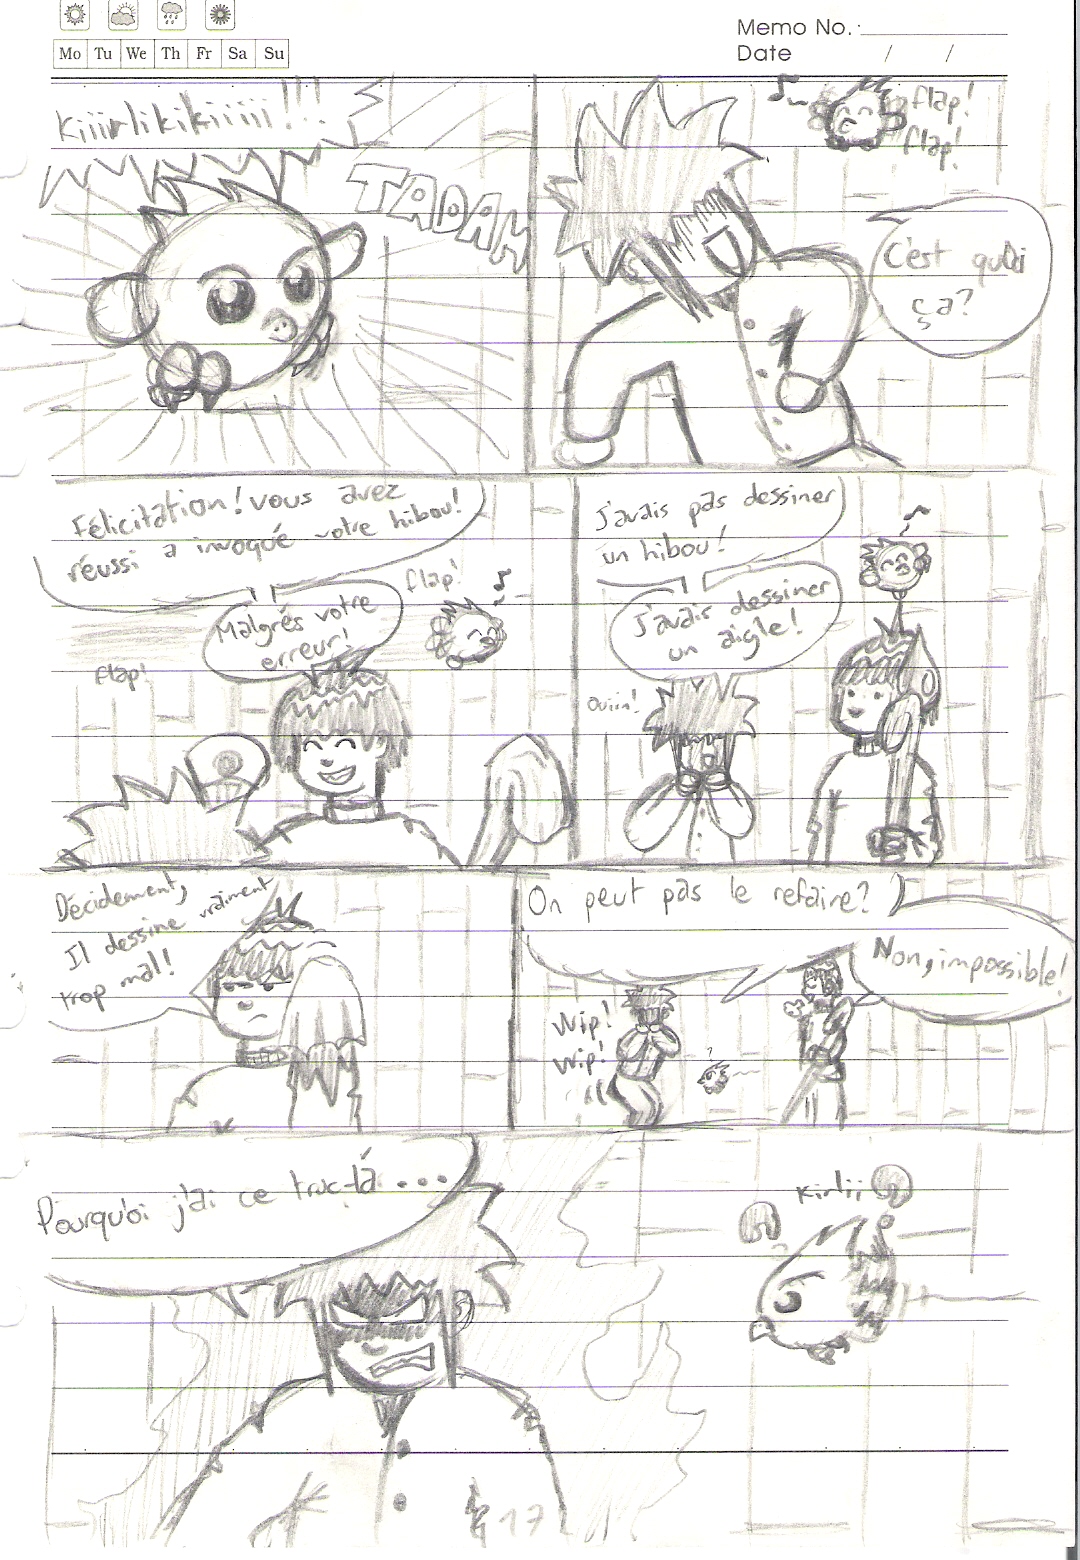 Mo Tu We Th Fr Sa Su
Memo No.:
Date / /
Kiiirlikikiiiii!!!
TADAM
flap!
flap!
C'est quoi
ça?
Félicitation! vous avez
réussi a invoqué votre hibou!
Malgrés votre
erreur!
flap!
flap!
J'avais pas dessiner
un hibou!
J'avais dessiner
un aigle!
Ouiin!
Décidement,
Il dessine vraiment
trop mal!
On peut pas le refaire?
Non, impossible!
Wip!
Wip!
?
Pourquoi j'ai ce truc-là...
Kirlii
17